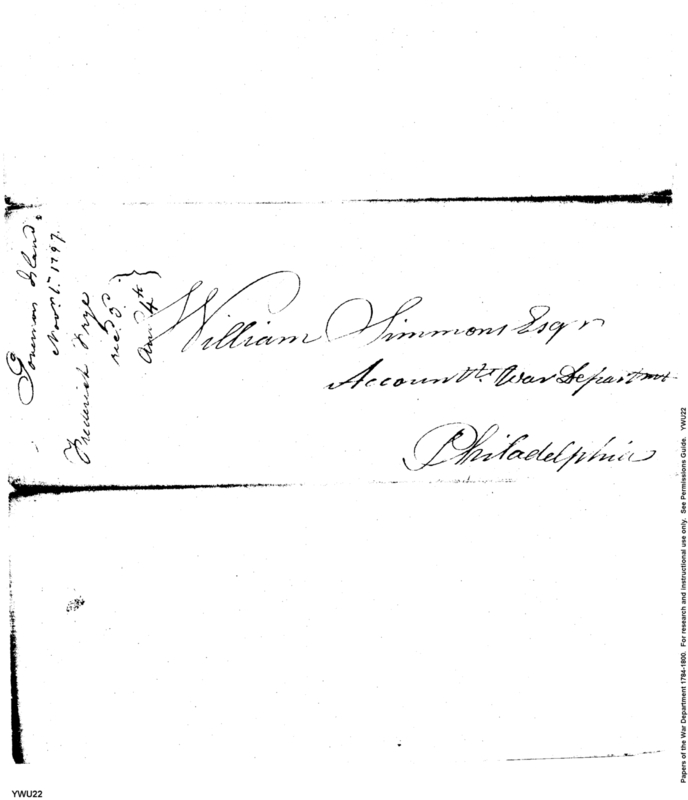 Governors Island
Novr. 1. 1797.
Frederick Frye
recd. 3d
Ansd 4th
William Simmons Esqr
Accountt. War Departmt
Philadelphia
Papers of the War Department 1784-1800. For research and instructional use only. See Permissions Guide. YWU22
YWU22